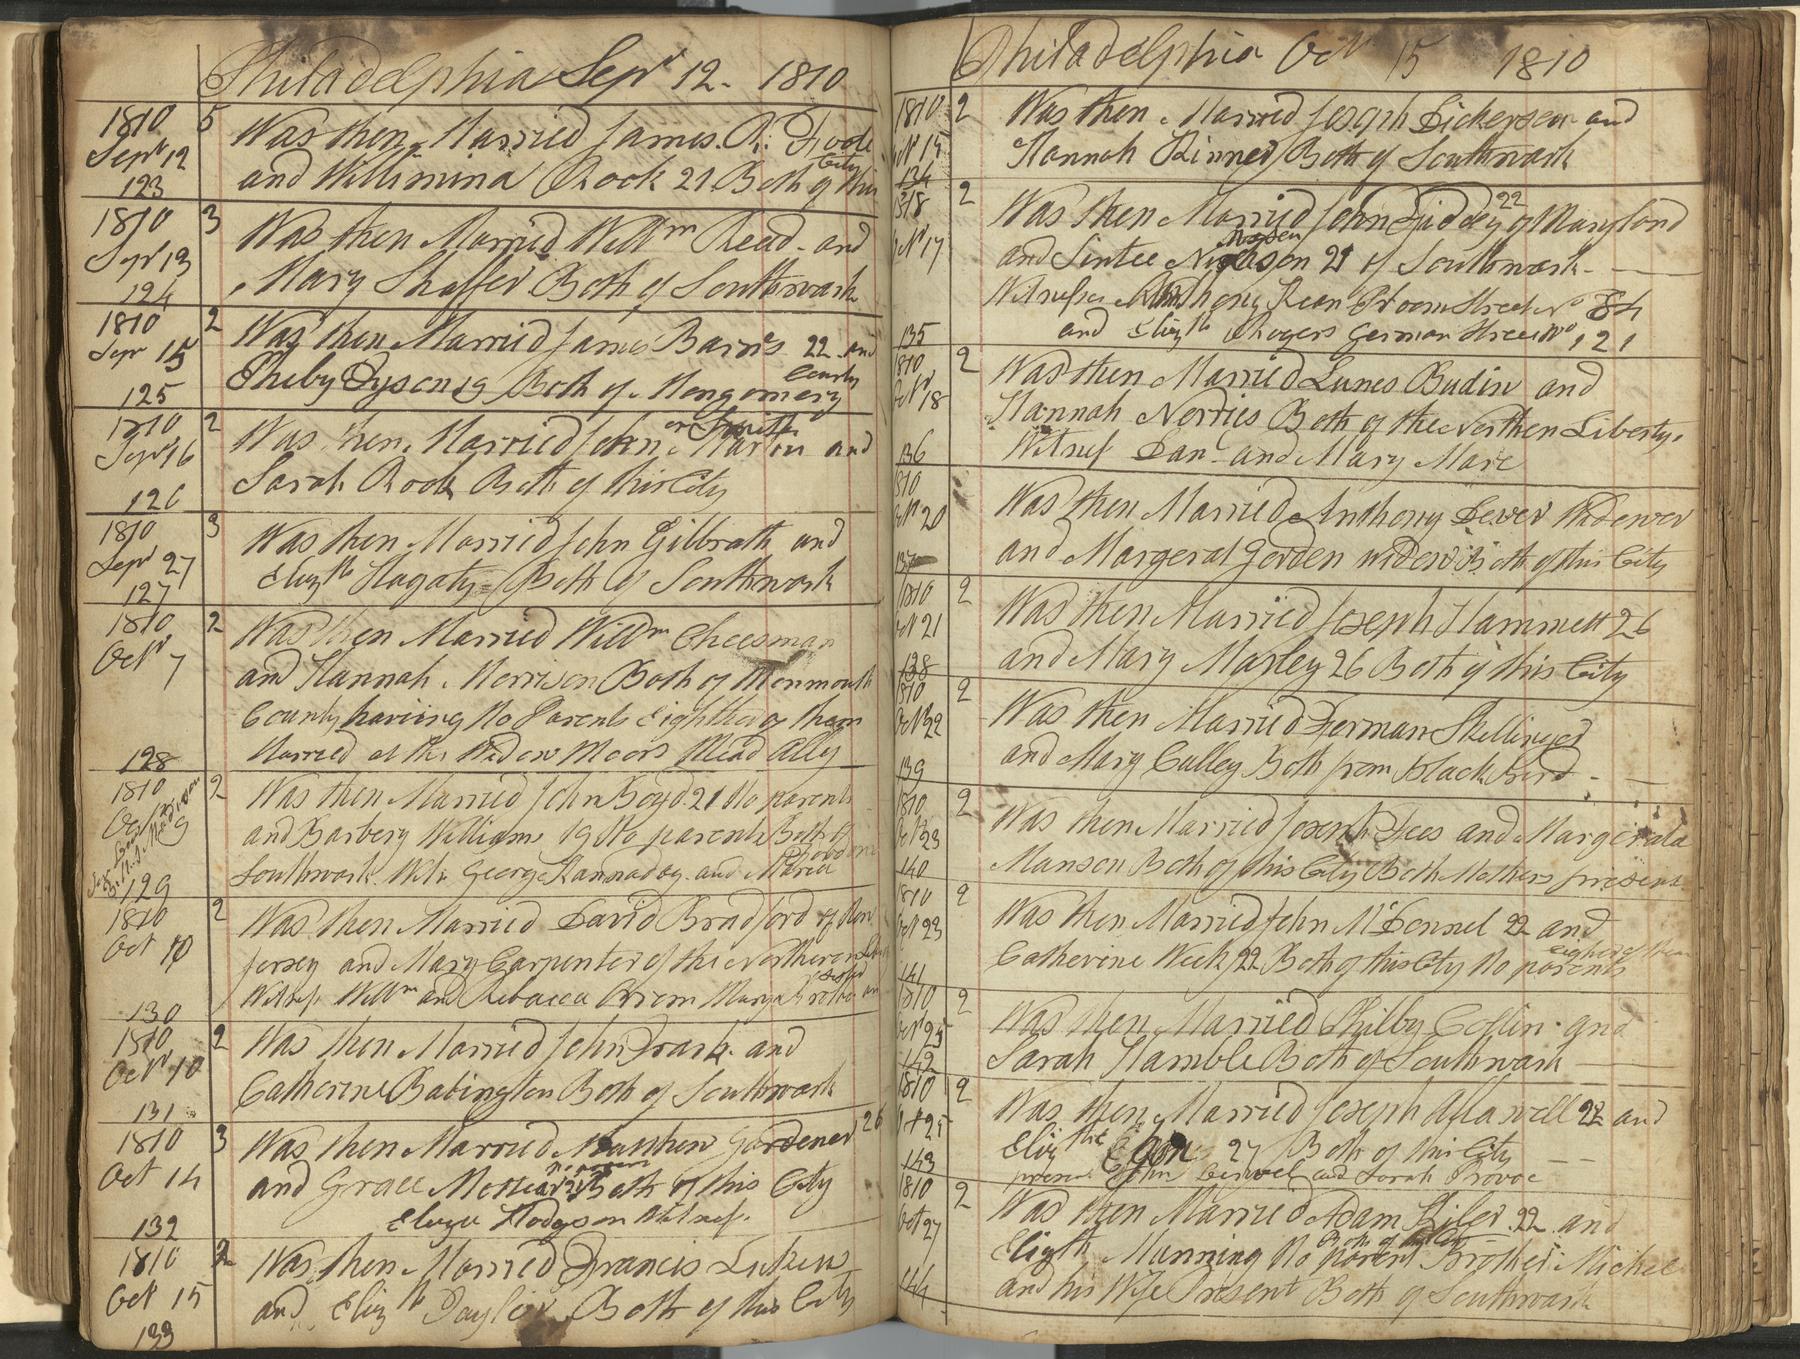 Philadelphia Sepr 12. 1810
1810
Sepr 12
123
5
Was then Married James. R. Foole
and Willimina Rook 21 Both of this
City
1810
Sepr 13
124
3
Was then Married Willm Reed and
Mary Shaffer Both of Southwark
1810
Sepr 15
125
2
Was then Married James Barns 22 and
Pheby Dyson 19 Both of Mongomery
County
1810
Sepr 16
126
2
Was then Married John Martin and
or Smith
Sarah Rook Both of this City
1810
Sepr 27
127
3
Was then Married John Gilbrath and
Elizth Hagaty Both of Southwark
1810
Octr 7
128
2
Was then Married Willm Cheesman
and Hannah Morrison Both of Monmouth
County having No Parents Eighther of them
Married at the Widow Moors Mead Ally
1810
Oct 9
129
2
Was then Married John Boyd 21 No parents
and Barbery Williams 19 No parents Both of
Southwark Wit. George Kannaday and Maria
1810
Oct 10
130
2
Was then Married David Bradford of New
Jersey and Mary Carpenter of the Northeren
Witness Willm and Rebacca
1810
Octr 10
131
2
Was then Married John Frank and
Catherine Babington Both of Southwark
1810
Oct 14
132
3
Was then Married Matthew Gardener 26
and Grace Both of this City
Witness
1810
Oct 15
133
2
Was then Married Francis
and Elizth Taylor Both of this City
Philadelphia Octr 15 1810
1810
Octr 15
134
2
Was then Married Joseph Dickerson and
Hannah Kinner Both of Southwark
1810
Octr 17
135
2
Was then Married John 22 of Maryland
and Sintee 21 of Southwark
Witness Anthony Kean Ploom Street No 84
and Elizth Rogers German Street No 121
1810
Octr 18
136
2
Was then Married Lunes Budin and
Hannah Norries Both of the Northen Liberty.
Witness Danl and Mary Mare
1810
Octr 20
137
Was then Married Anthony Dever Widower
and Margerat Gorden widow Both of this City
1810
Octr 21
138
2
Was then Married Joseph Hammett 26
and Mary Maxley 26 Both of this City
1810
Octr 22
139
2
Was then Married Ferman Skellinger
and Mary Calley Both from Black Bird
1810
Octr 23
140
2
Was then Married Joseph Fees and Margerata
Manson Both of this City Both Mothers present
1810
Octr 23
141
2
Was then Married John McDonnel 22 and
Catherine Week 22 Both of this City No parents
eigher of them
1810
Octr 25
142
2
Was then Married Philby Coflin and
Sarah Hamble Both of Southwark
1810
Oct 25
143
2
Was then Married Joseph 22 and
Elizth 27 Both of this City
present John and Sarah Provoe
1810
Oct 27
144
2
Was then Married Adam 22 and
Eligth Munning No parent Brother Michel
and his Wife Present Both of Southwark